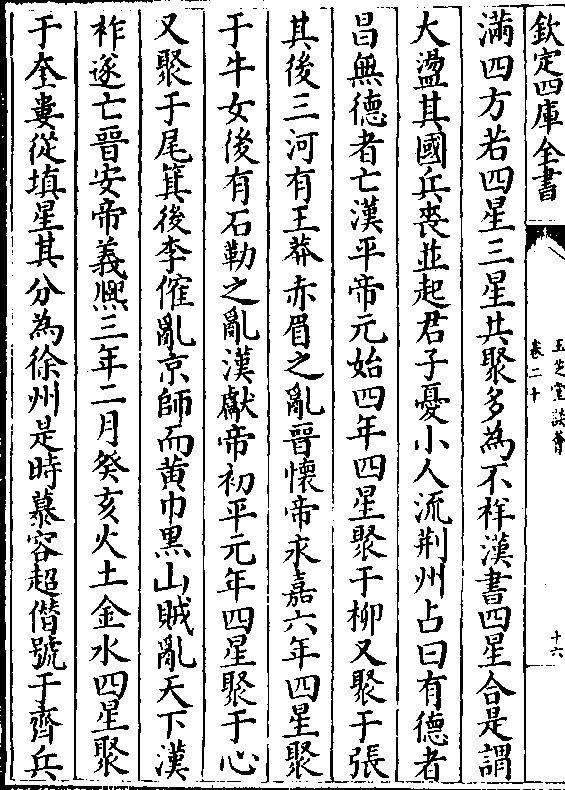 欽定四庫全書
玉芝堂談薈
卷二十
十六
滿四方若四星三星共聚多為不祥漢書四星合是謂
大盪其國兵喪並起君子憂小人流荆州占曰有德者
昌無德者亡漢平帝元始四年四星聚于柳又聚于張
其後三河有王莽赤眉之亂晉懷帝永嘉六年四星聚
于牛女後有石勒之亂漢獻帝初平元年四星聚于心
又聚于尾箕後李傕亂京師而黄巾黒山賊亂天下漢
祚遂亡晉安帝義熈三年二月癸亥火土金水四星聚
于奎婁從填星其分為徐州是時慕容超僣號于齊兵